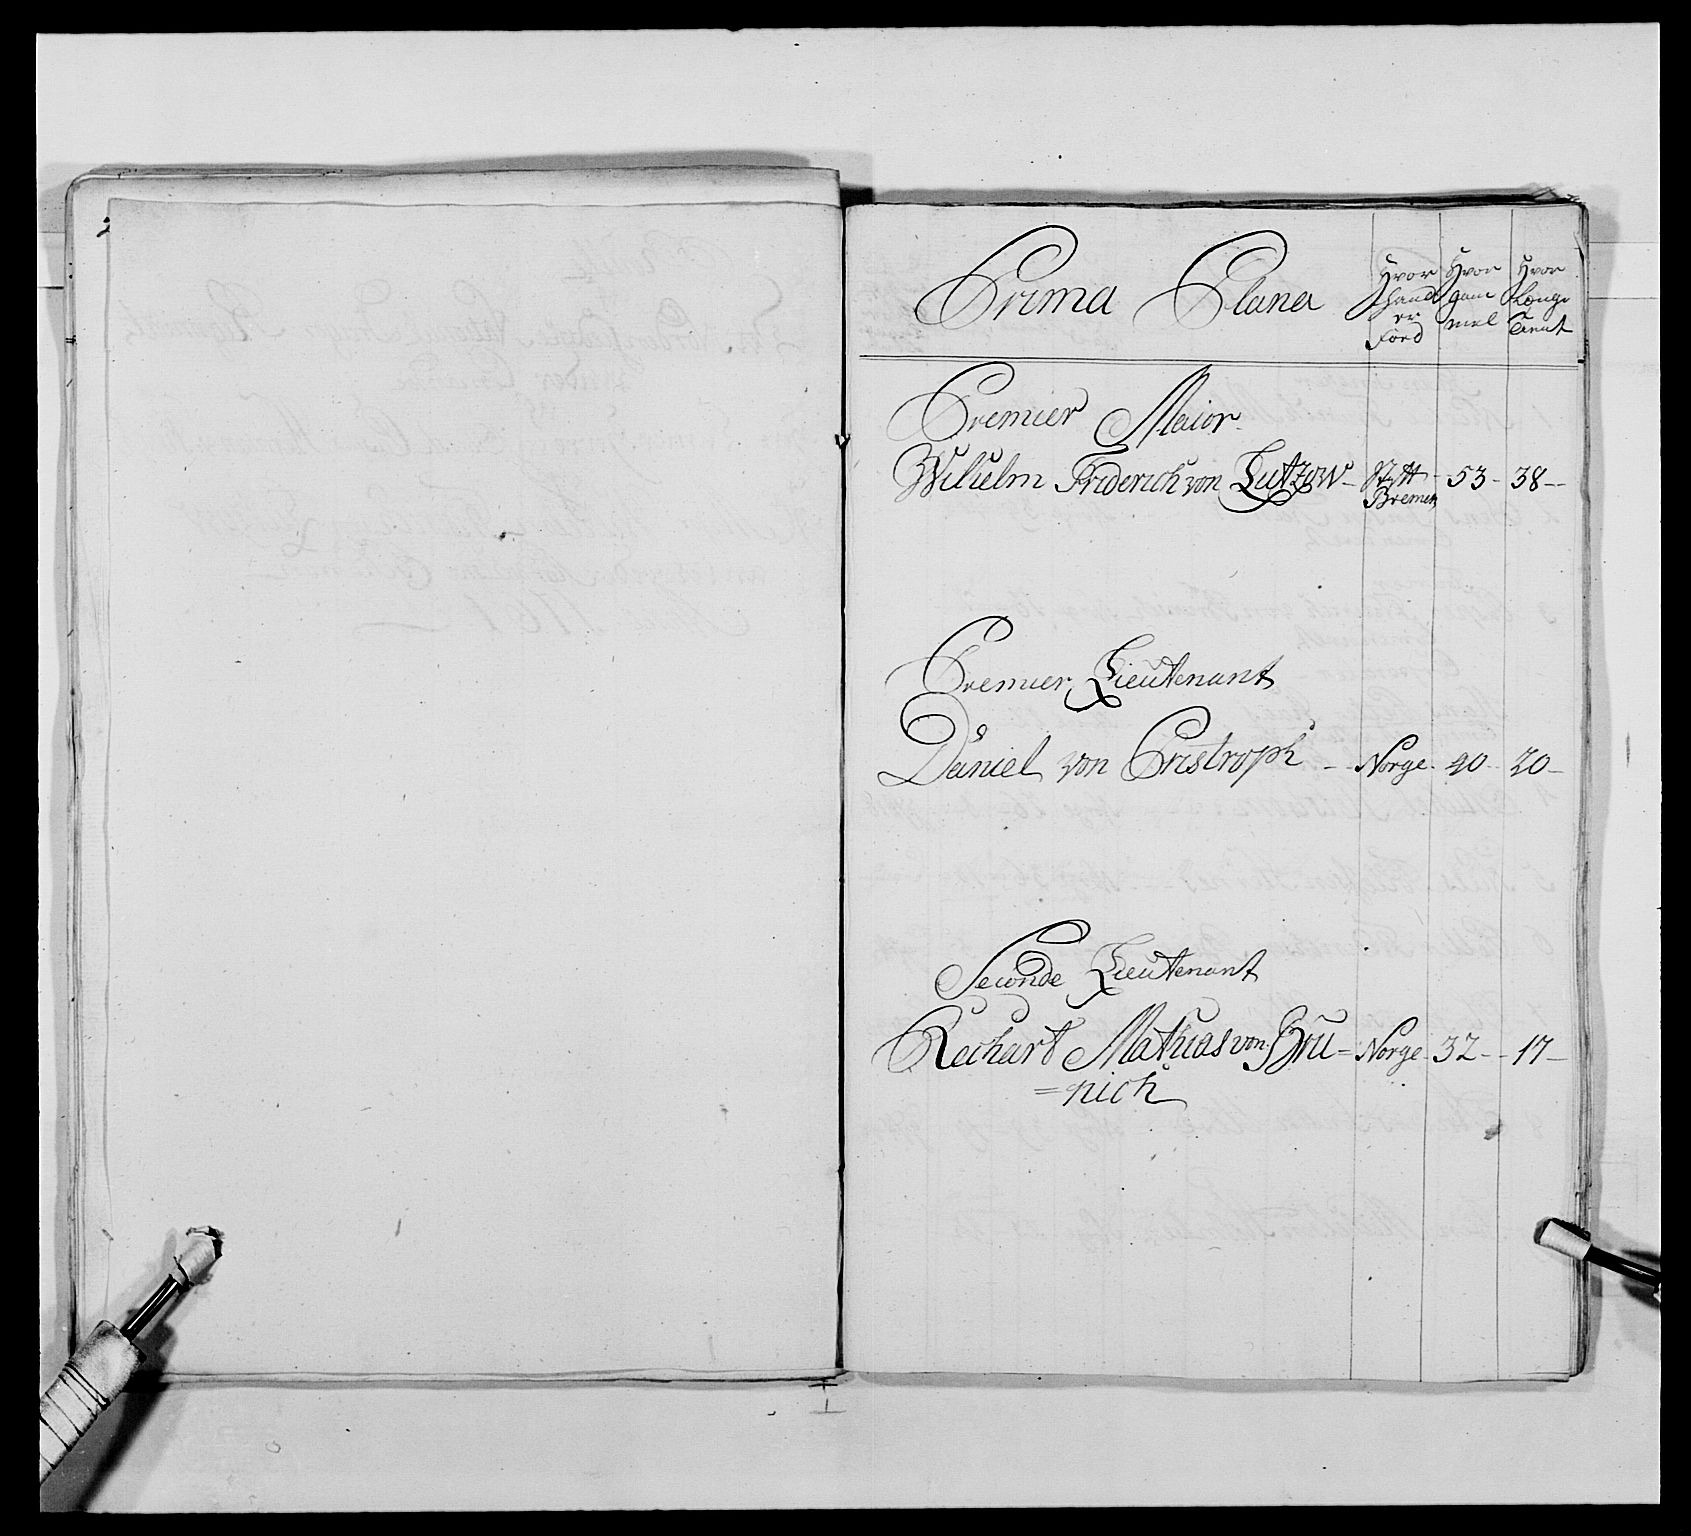 Prima Plana
Hvor hand er Förd
Hvor gam mel
Hvor Længe Tient
Premier Maior
Wilhelm Friderich von Lutzow – Stift Bremen – 53 – 38 –
Premier Lieutenant
Daniel von Cristroph – Norge – 40 – 20 –
Seconde Lieutenant
Rechart Mathias von Brü= Norge – 32 – 17 –
=nich